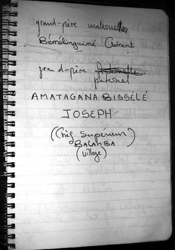 grand-père maternelle
grand-père
paternel
AMATAGANA BISSÉLÉ
JOSEPH
(Chef Supérieur)
BALAMBA
(Village)